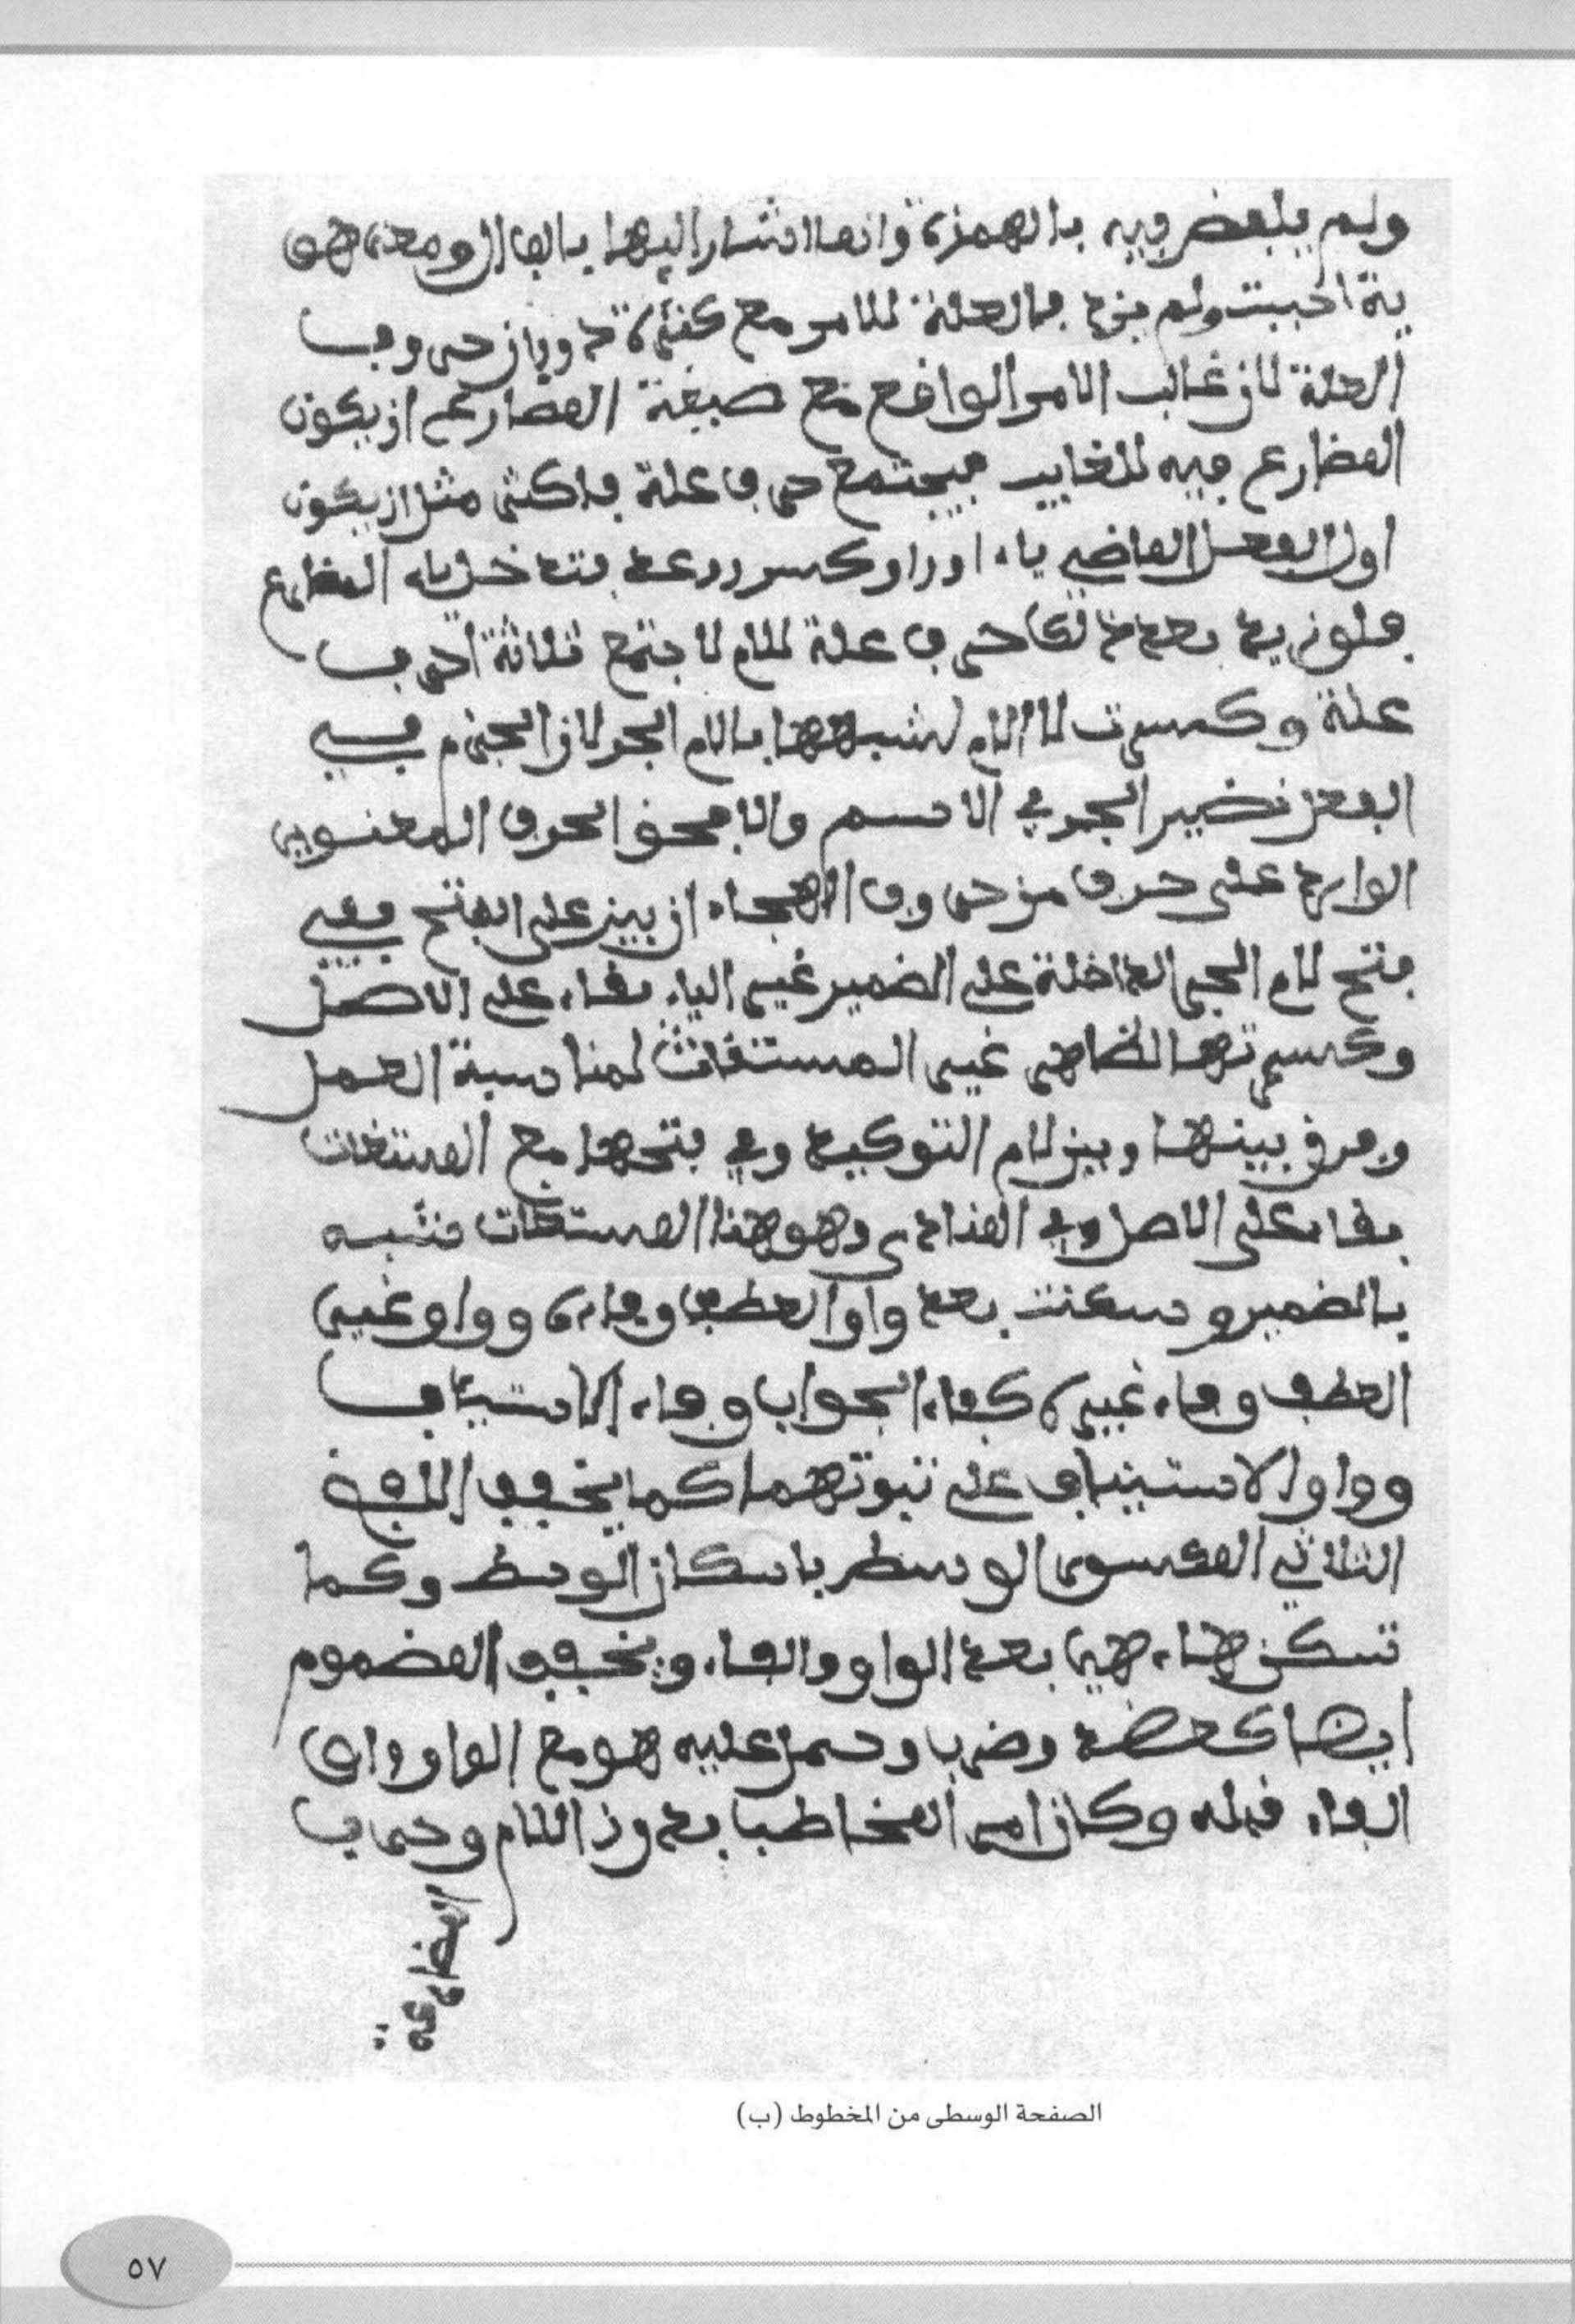 ولم يلفض فيه بالهمزة وانما اشار اليها بالفا ومعنى
ية احببت ولم يزد العلة للامر مع كثرة دوران حروف
العلة لان غالب الامر الواقع مع صيغة المضارع ان يكون
المضارع فيه للغايب فيجتمع حرفا علة فاكثر مثل ان يكون
اول الفعل الماضي ياء او واو فتدخل ياء المضارع
فلو زيد بعد ذلك حرف علة للام لاجتمع ثلاثة احرف
علة وكسرت اللام لشبهها بلام الجر لان الجزم في
الفعل نضير الجر في الاسم والا فحق الحرف المعنوي
الوارد على حرف من حروف الهجاء ان يبنى على الفتح فبقي
فتح لام الجر الداخلة على الضمير غير الياء بقاء على الاصل
وكسرتها الظاهر غير المستغاث لمناسبة العمل
وفرق بينها وبين لام التوكيد وفي فتحها مع المستغاث
بقاء على الاصل وفي المنادى وهو هذا المستغاث شبه
بالضمير وسكنت بعد واو العطف وفائه وواو غير
العطف وفاء غيره كفاء الجواب وفاء الاستيناف
وواو الاستيناف على ثبوتهما كما يخفف اللفظ
الثلاثي المكسور الوسط باسكان الوسط وكما
تسكن هاء هي بعد الواو والفاء ويخفف المضموم
ايضا كعضد وضرب وحمل عليه هو مع الواو او
الفاء قبله وكان امر المخاطب بدون اللام وحرف
المضارعة
الصفحة الوسطى من المخطوط (ب)
٥٧